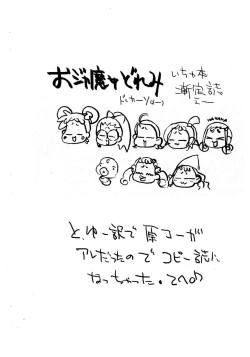 おジャ魔女どれみ
いちお本
漸定誌。
ドッカ〜ン(ロー)
と、ゆー訳で原コーが
アレだったのでコピー誌に
なっちゃった。てへ♪